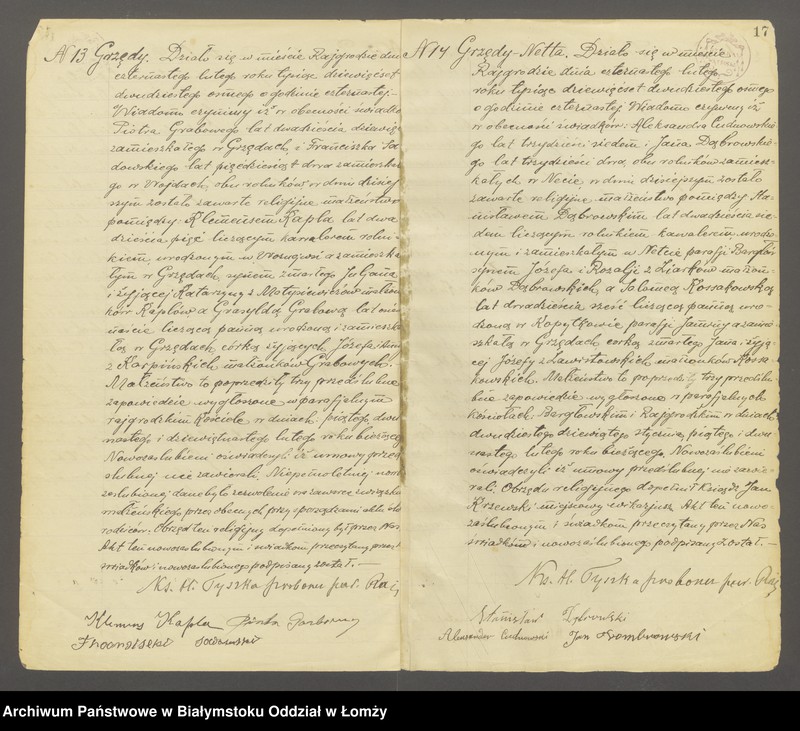 17
N 13 Grzędy. Działo się w mieście Rajgrodzie dnia
czternastego lutego roku tysiąc dziewięćset
dwudziestego ósmego o godzinie czternastej.-
Wiadomo czynimy iż w obecności świadków
Piotra Grabowego lat dwadzieścia dziewięć
zamieszkałego w Grzędach, i Franciszka Sa-
dowskiego lat pięćdziesiąt dwa zamieszkałe-
go w Wojdach, obu rolników w dniu dzisiej-
szym zostało zawarte religijne małżeństwo
pomiędzy Klemensem Kapla lat dwa-
dzieścia pięć liczącym kawalerem rolni-
kiem, urodzonym w a zamieszka-
łym w Grzędach, synem zmarłego Juljana
i żyjącej Katarzyny z małżon-
ków Kaplów a Grasyldą Grabową lat
liczącą panną urodzoną i zamieszka-
łą w Grzędach córką żyjących Józefa i
z Karpińskich małżonków Grabowych.
Małżeństwo to poprzedziły trzy przedślubne
zapowiedzie wygłoszone w parafjalnym
rajgrodzkim Kościele w dniach: piątego, dwu-
nastego i lutego roku bieżącego
Nowozaślubieni oświadczyli iż umowy przed-
ślubnej nie zawierali. Niepełnoletniej nowo-
zaślubionej dane było zezwolenie na zawarcie związku
małżeńskiego przez obecnych przy sporządzaniu aktu
rodziców. Obrzęd ten religijny dopełniony był przez Nas
Akt ten nowozaślubionym i świadkom przeczytany przez
świadków i nowozaślubionego podpisany został. —
Ks. Al. Tyszka proboszcz par. Raj
Klemens Kapla Piotr
Franciszek Sadowski
N 14 Grzędy-Netta. Działo się w mieście
Rajgrodzie dnia czternastego lutego
roku tysiąc dziewięćset dwudziestego ósmego
o godzinie czternastej. Wiadomo czynimy iż
w obecności świadków: Aleksandra Cudnowskie-
go lat trzydzieści siedem i Jana Dąbrowskie-
go lat trzydzieści dwa, obu rolników zamiesz-
kałych w Necie w dniu dzisiejszym zostało
zawarte religijne małżeństwo pomiędzy Sta-
nisławem Dąbrowskim lat dwadzieścia sie-
dem liczącym rolnikiem kawalerem, urodzo-
nym i zamieszkałym w Netcie parafji Bargłów
synem Józefa i Rozalji z małżon-
ków Dąbrowskich, a Salomeą Kossakowską
lat dwadzieścia sześć liczącą panną uro-
dzoną w Kopytkowie parafji Jaminy a zamie-
szkałą w Grzędach córką zmarłego Jana i żyją-
cej Józefy z Ławistowskich małżonków Kossa-
kowskich. Małżeństwo to poprzedziły trzy przedślu-
bne zapowiedzie wygłoszone w parafjalnych
kościołach Bargłowskim i Rajgrodzkim w dniach
dwudziestego dziewiątego stycznia, piątego i dwu-
nastego lutego roku bieżącego. Nowozaślubieni
oświadczyli iż umowy przedślubnej nie zawie-
rali. Obrzędu religijnego dopełnił Ksiądz Jan
Krzewski miejscowy wikarjusz. Akt ten nowo-
zaślubionym i świadkom przeczytany przez Nas
świadków i nowozaślubionego podpisany został. —
Ks. Al. Tyszka proboszcz par. Raj
Stanisław Dąbrowski
Aleksander Cudnowski Jan Dombrowski
Archiwum Państwowe w Białymstoku Oddział w Łomży